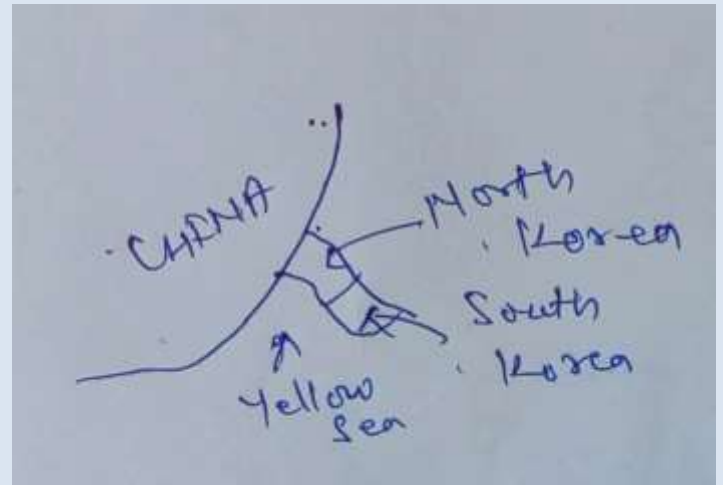 CHINA
North
Korea
South
Korea
Yellow
Sea